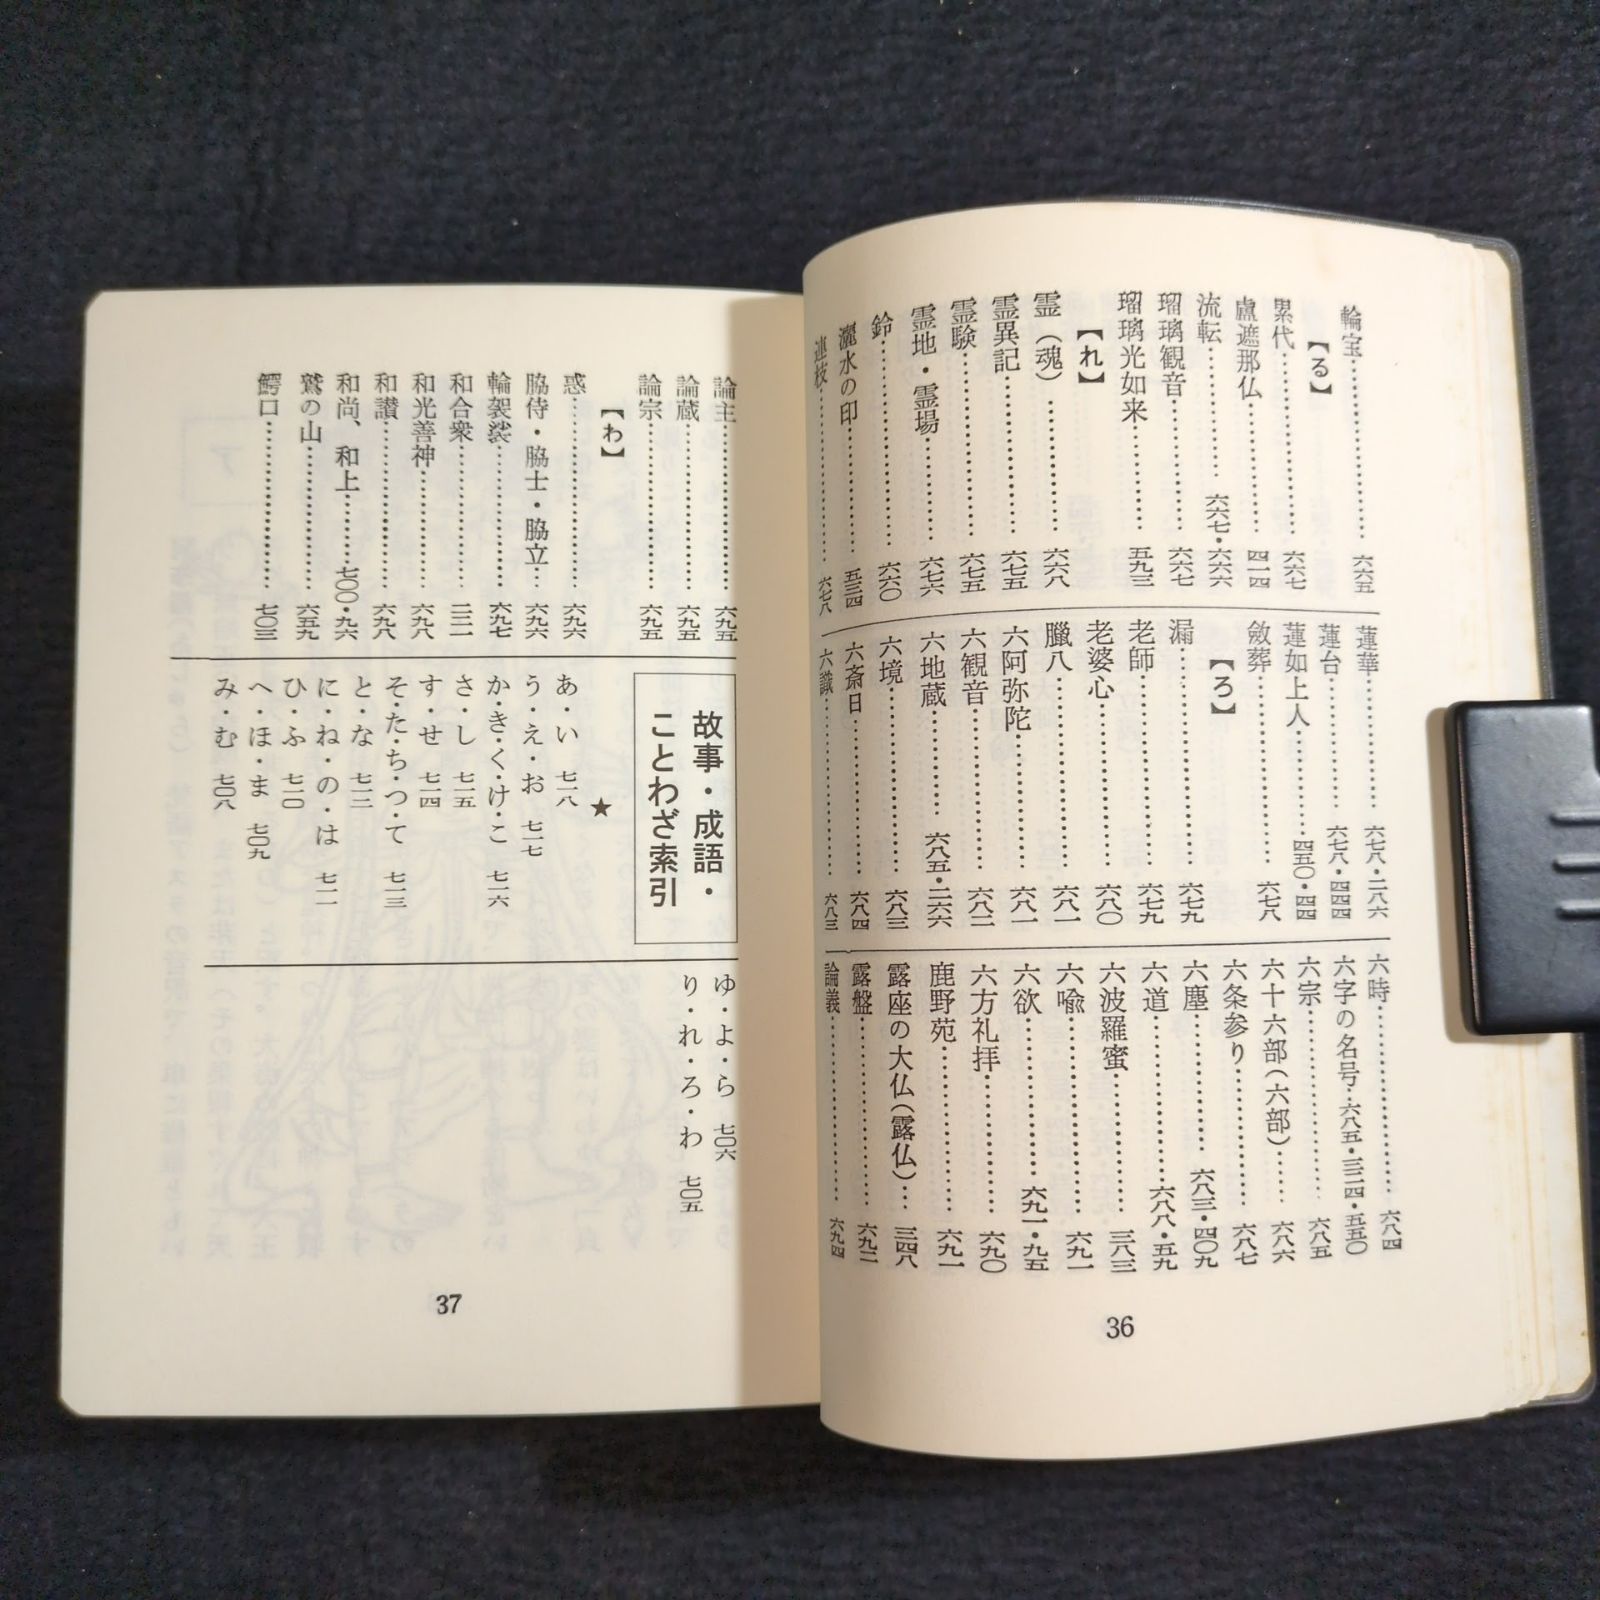 輪宝…………六六五
【る】
累代…………六六七
盧遮那仏…………四一四
流転…………六六七・六六六
瑠璃観音…………六六七
瑠璃光如来…………五九三
【れ】
霊(魂)…………六六八
霊異記…………六七五
霊験…………六七五
霊地・霊場…………六七六
鈴…………六六〇
灑水の印…………五三四
連枝…………六七八
蓮華…………六七八・二八六
蓮台…………六七八・四四四
蓮如上人…………四五〇・四四
斂葬…………六七八
【ろ】
漏…………六七九
老師…………六七九
老婆心…………六八〇
臘八…………六八一
六阿弥陀…………六八一
六観音…………六八二
六地蔵…………六八五・二六六
六境…………六八三
六斎日…………六八四
六識…………六八三
六時…………六八四
六字の名号…六八五・三二四・五五〇
六宗…………六八五
六十六部(六部)…………六八六
六条参り…………六八七
六塵…………六八三・四〇九
六道…………六八八・五九
六波羅蜜…………三八三
六喩…………六九一
六欲…………六九一・九五
六方礼拝…………六九〇
鹿野苑…………六九一
露座の大仏(露仏)…三四八
露盤…………六九二
論義…………六九四
36
論主…………六九五
論蔵…………六九五
論宗…………六九五
【わ】
惑…………六九六
脇侍・脇士・脇立…六九六
輪袈裟…………六九七
和合衆…………三二一
和光善神…………六九八
和讃…………六九八
和尚、和上…………七〇〇・九六
鷲の山…………六五九
鰐口…………七〇三
故事・成語・
ことわざ索引
★
あ・い 七一八
う・え・お 七一七
か・き・く・け・こ 七一六
さ・し 七一五
す・せ 七一四
そ・た・ち・つ・て 七一三
と・な 七一二
に・ね・の・は 七一一
ひ・ふ 七一〇
へ・ほ・ま 七〇九
み・む 七〇八
ゆ・よ・ら 七〇六
り・れ・ろ・わ 七〇五
37